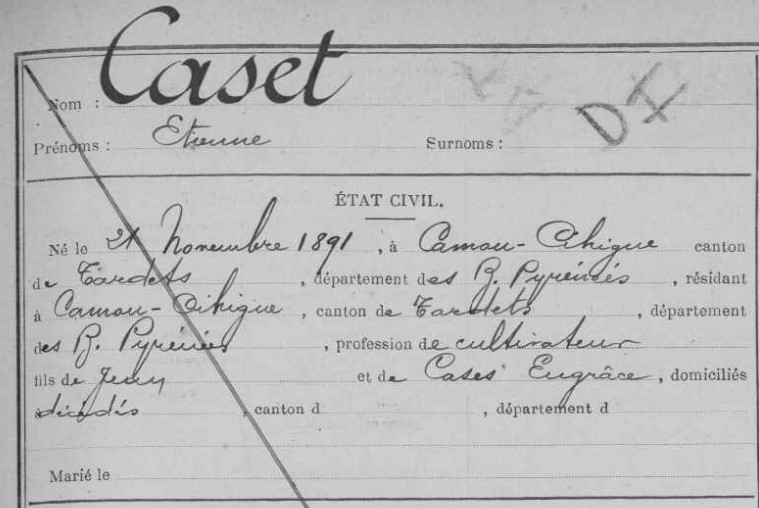 Nom : Caset
Prénoms : Etienne Surnoms : DI
ÉTAT CIVIL.
Né le 21 Novembre 1891, à Camou-Cihigue canton
de Tardets, département des B. Pyrénées, résidant
à Camou-Cihigue, canton de Tardets, département
des B. Pyrénées, profession de cultivateur
fils de Jean et de Cases Engrâce, domiciliés
décédés, canton d , département d
Marié le